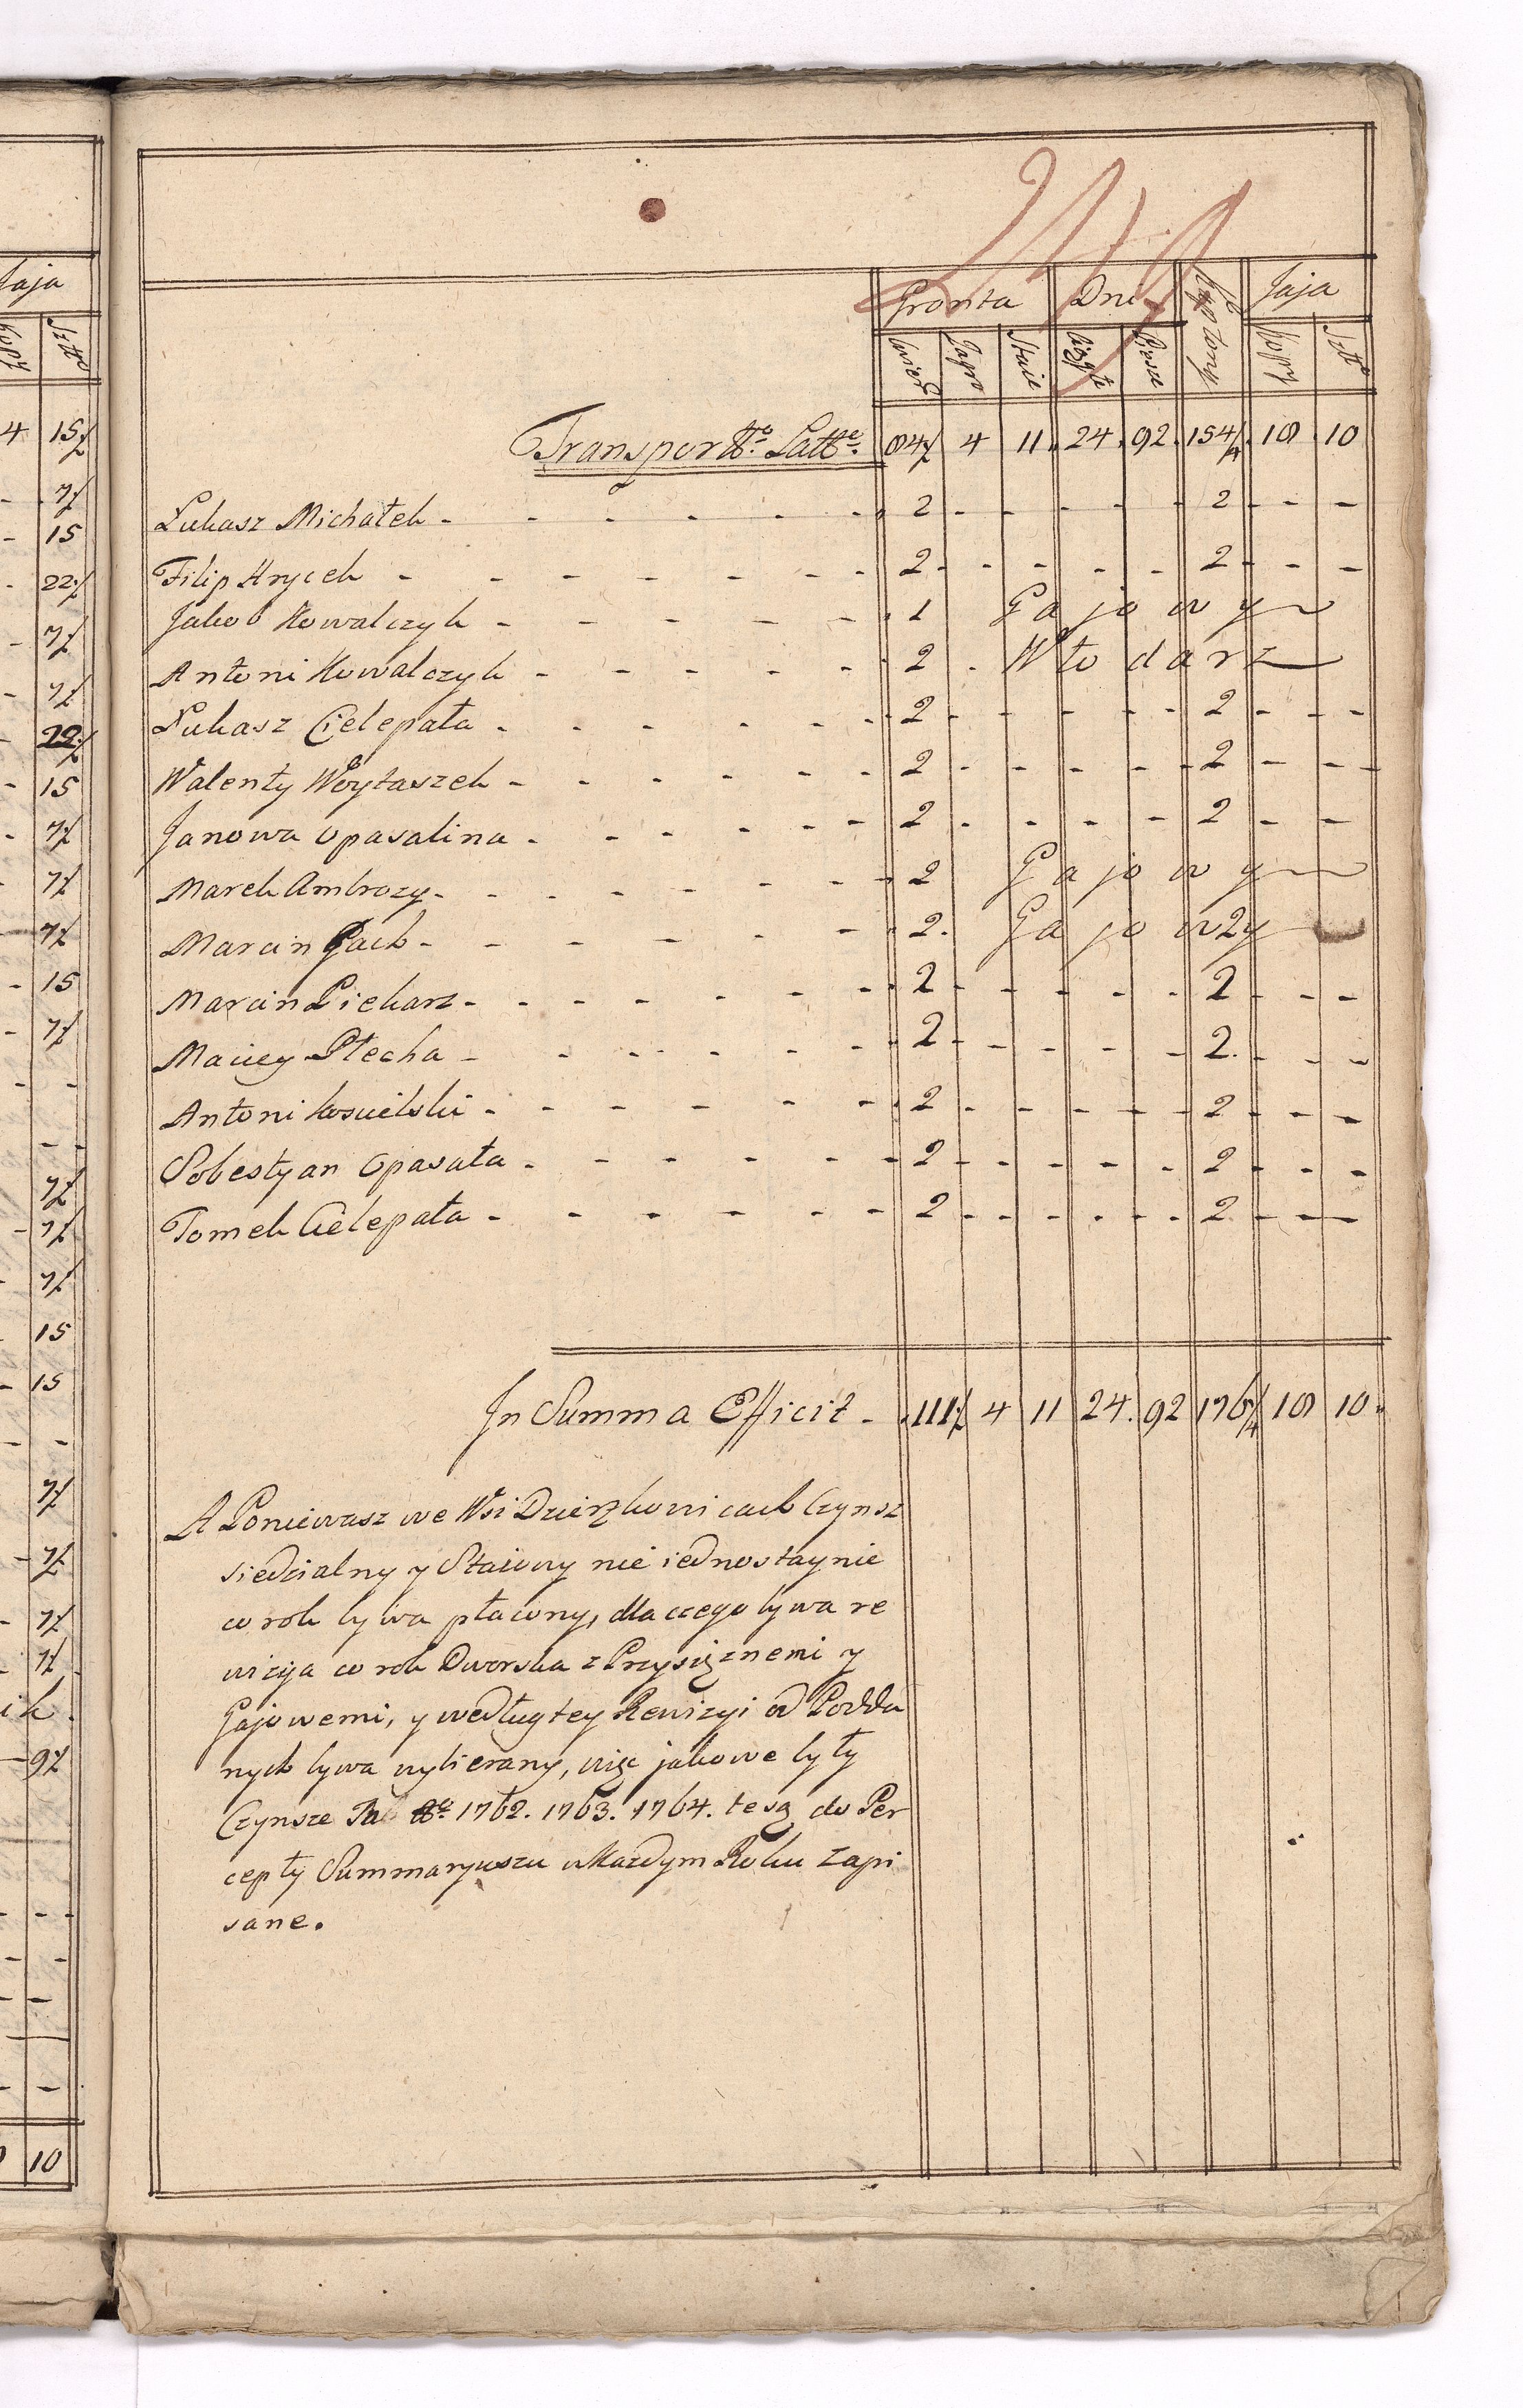 Jaja
Kopy Sztu
4 15½
7½
15
22½
7½
7½
22½
15
7½
7½
7½
15
7½
7½
7½
7½
15
15
7½
7½
7½
7½
9½
10
Gronta Dni Kapłony Jaja
Cwierć Zagro Staie Ciągłe Piesze Kopy Sztu
Transport Latte. 84½ 4 11. 24. 92. 154/4. 18 10
Łukasz Michałek - 2 - - - - 2 - - -
Filip Hrycek - 2 - - - - 2 - - -
Jakob Kowalczyk - 1 Gajowy
Antoni Kowalczyk - 2 - Włodarz
Łukasz Cielepała - 2 - - - - 2 - - -
Walenty Woytaszek - 2 - - - - 2 - - -
Janowa Opasalina - 2 - - - - 2 - - -
Marek Ambrozy - 2 Gajowy
Marcin Gach - 2. Gajowy
Marcin Piekarz - 2 - - - - 2 - - -
Maciey Płecha - 2 - - - - 2. - - -
Antoni Koscielski - 2 - - - - 2 - - -
Sobestyan Opasała - 2 - - - - 2 - - -
Tomek Cielepała - 2 - - - - 2 - - -
In Summa Efficit - 111½ 4 11 24. 92 176/4 18 10
A Poniewasz we Wsi Dzierzkowicach Czynsz
siedzialny y Staiowy nie iednostaynie
co rok bywa płacony, dla czego bywa re
wizya co rok Dworska z Przysięznemi y
Gajowemi, y według tey Rewizyi od Podda
nych bywa wybierany, więc jakowe były
Czynsze 1762. 1763. 1764. te są do Per
cepty Summaryuszu w Kazdym Roku Zapi
sane.